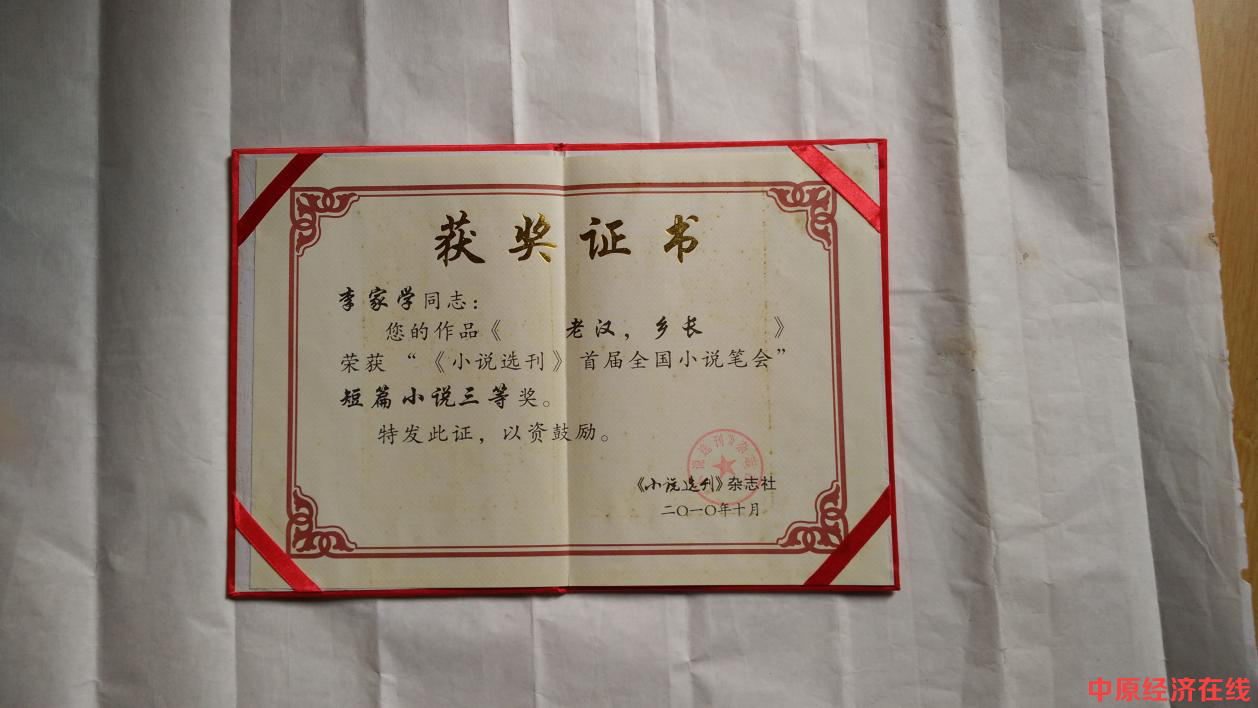 获奖证书
李家学同志：
您的作品《 老汉，乡长 》
荣获“《小说选刊》首届全国小说笔会”
短篇小说三等奖。
特发此证，以资鼓励。
说选刊》杂志
《小说选刊》杂志社
二〇一〇年十月
中原经济在线